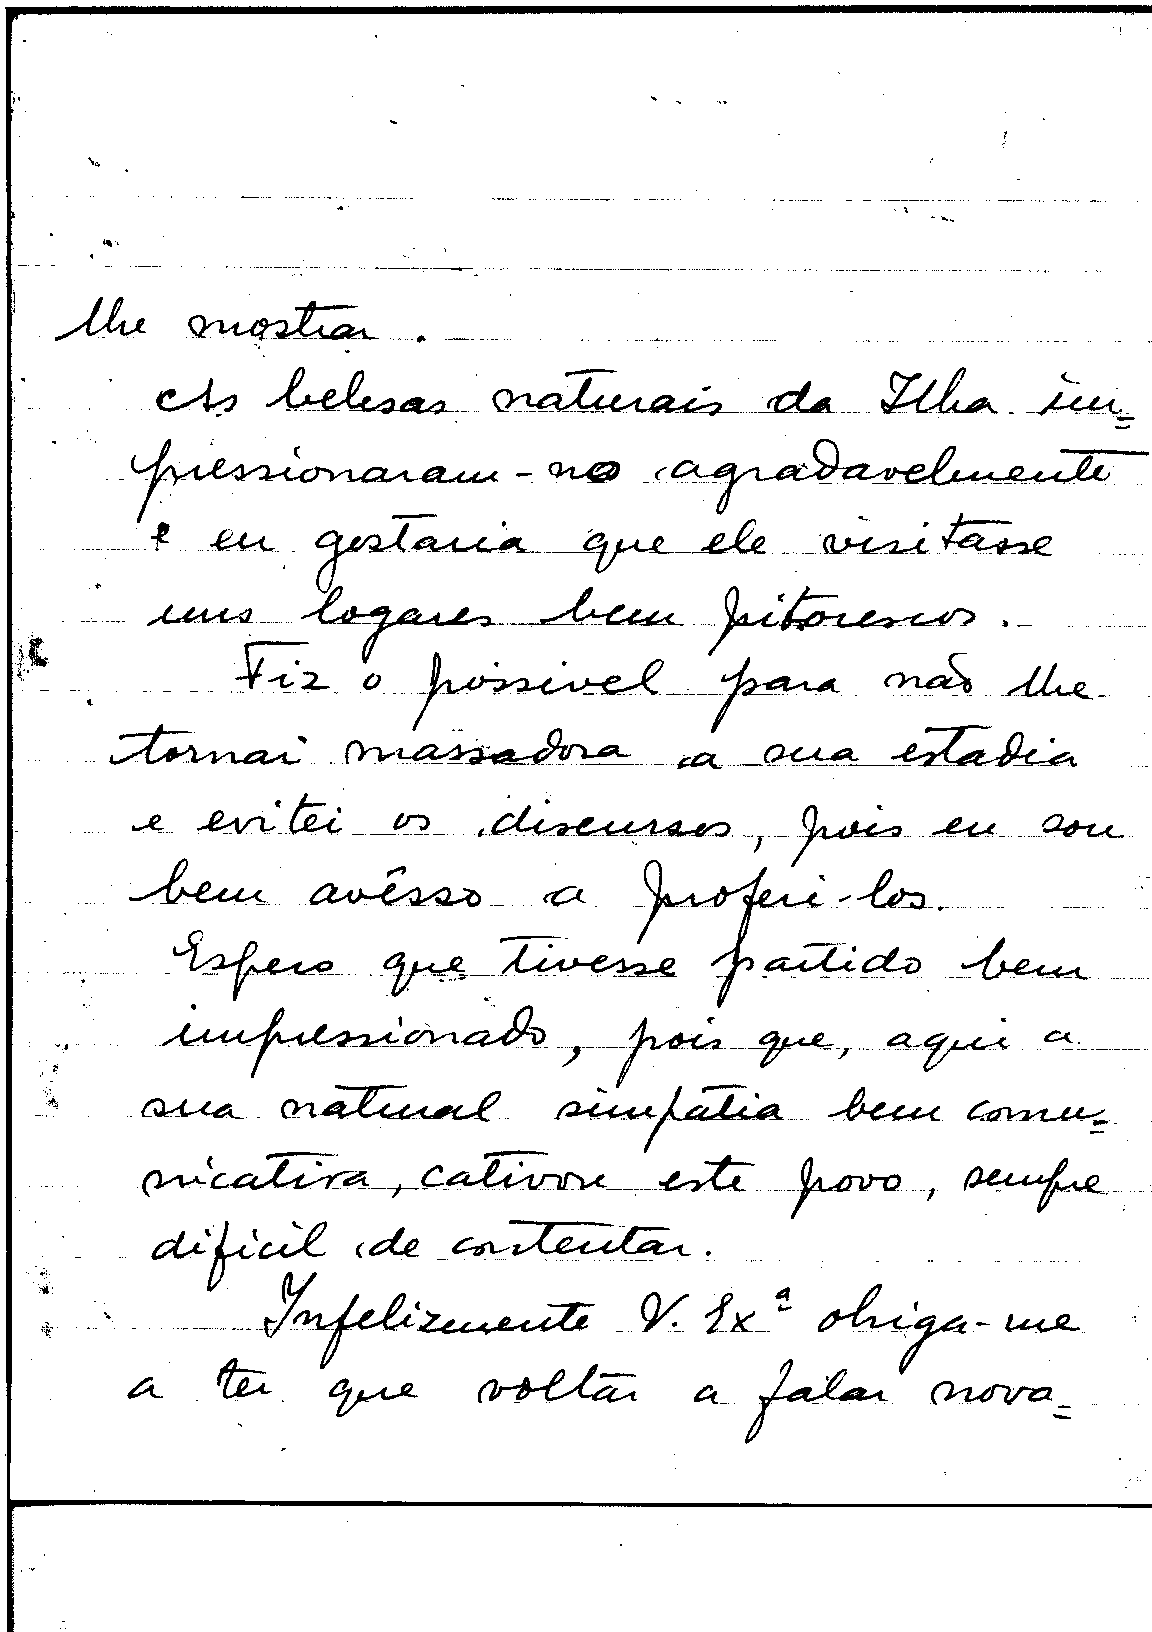 lhe mostrar.
As belesas naturais da Ilha im=
pressionaram-no agradavelmente
e eu gostaria que ele visitasse
uns logares bem pitorescos.
Fiz o possivel para não lhe
tornar massadora a sua estadia
e evitei os discursos, pois eu sou
bem avêsso a proferi-los.
Espero que tivesse partido bem
impressionado, pois que, aqui a
sua natural simpatia bem comu=
nicativa, cativou este povo, sempre
dificil de contentar.
Infelizmente V. Exª obriga-me
a ter que voltar a falar nova=